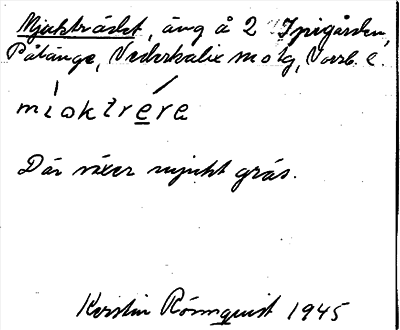 Mjukträdet, äng å 2 Spigården,
Pålänge, Nederkalix sn o tg, Norrb. l.
miọktrere
Där växer mjukt gräs.
Kerstin Rönnquist 1945